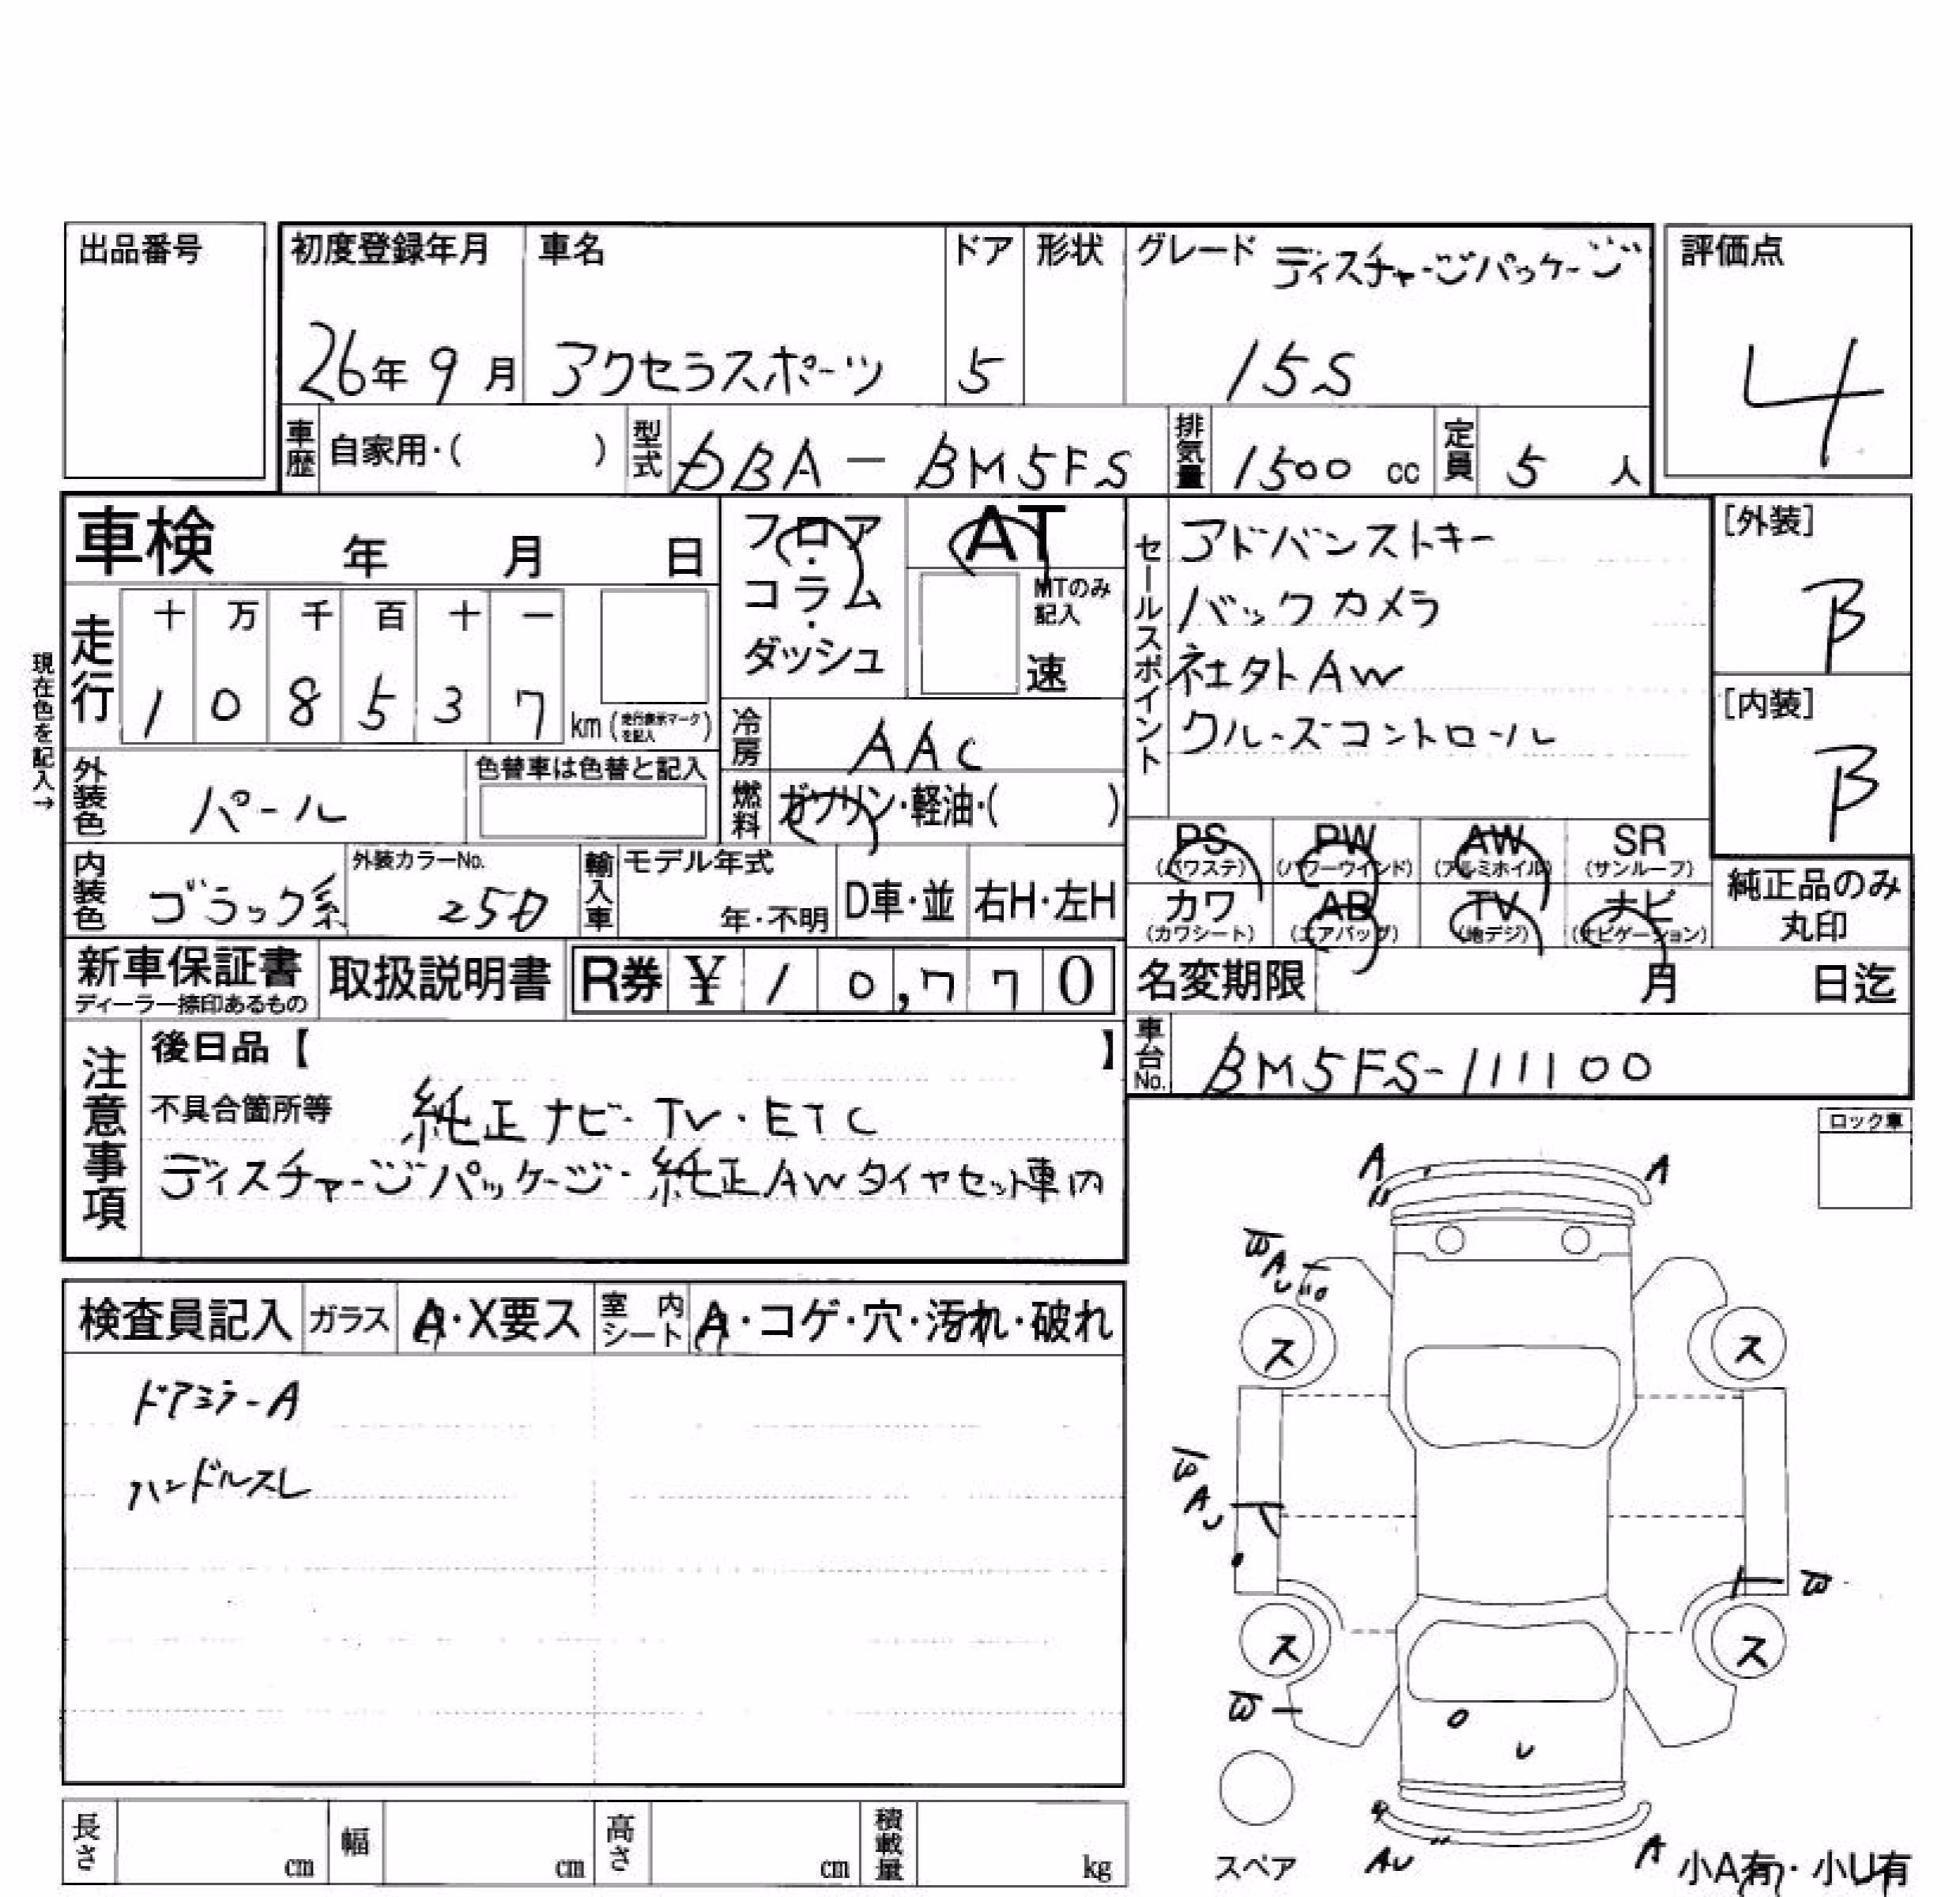 出品番号
初度登録年月 車名 ドア 形状 グレード ディスチャージパッケージ 評価点
26年 9月 アクセラスポーツ 5 15S 4
車歴 自家用・( ) 型式 DBA - BM5FS 排気量 1500 cc 定員 5 人
車検 年 月 日
フロア・コラム・ダッシュ
AT
MTのみ記入
速
セールスポイント
アドバンストキー
バックカメラ
社外AW
クルーズコントロール
[外装]
B
[内装]
B
現在色を記入→
走行 十 万 千 百 十 一
1 0 8 5 3 7 km (走行表示マークを記入)
冷房 AAC
外装色 パール 色替車は色替と記入
燃料 ガソリン・軽油・( )
PS (パワステ) PW (パワーウインド) AW (アルミホイル) SR (サンルーフ)
カワ (カワシート) AB (エアバッグ) TV (地デジ) ナビ (ナビゲーション)
純正品のみ丸印
内装色 ブラック系 外装カラーNo. 25D 輸入車 モデル年式 年・不明 D車・並 右H・左H
新車保証書 ディーラー捺印あるもの 取扱説明書 R券 ¥ 1 0,7 7 0
名変期限 月 日迄
車台No. BM5FS-111100
注意事項
後日品【 】
不具合箇所等 純正ナビ・TV・ETC
ディスチャージパッケージ・純正AWタイヤセット車内
ロック車
検査員記入 ガラス A・X要ス 室内シート A・コゲ・穴・汚れ・破れ
ドアミラーA
ハンドルスレ
A A
W
AU
ス ス
W
AU
W
ス ス
W
U
スペア
AU A
小A有・小U有
長さ cm 幅 cm 高さ cm 積載量 kg